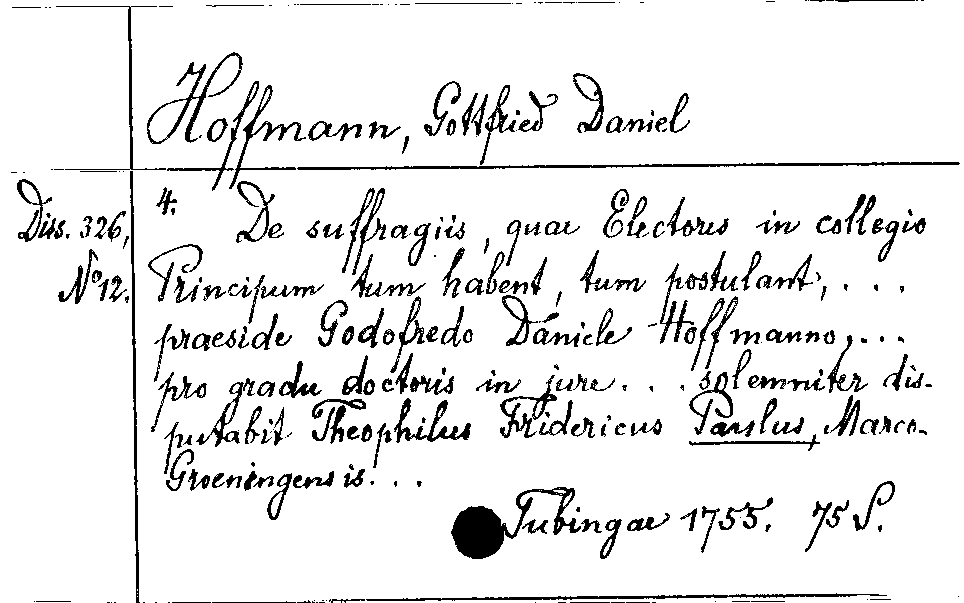 Hoffmann, Gottfried Daniel
Diss. 326,
No 12.
4. De suffragiis, quae Electores in collegio
Principum tum habent, tum postulant, . . .
praeside Godofredo Daniele Hoffmanno, . . .
pro gradu doctoris in jure . . . solemniter dis-
putabit Theophilus Fridericus Paulus, Marco-
Groeningensis . . .
Tubingae 1755. 75 S.